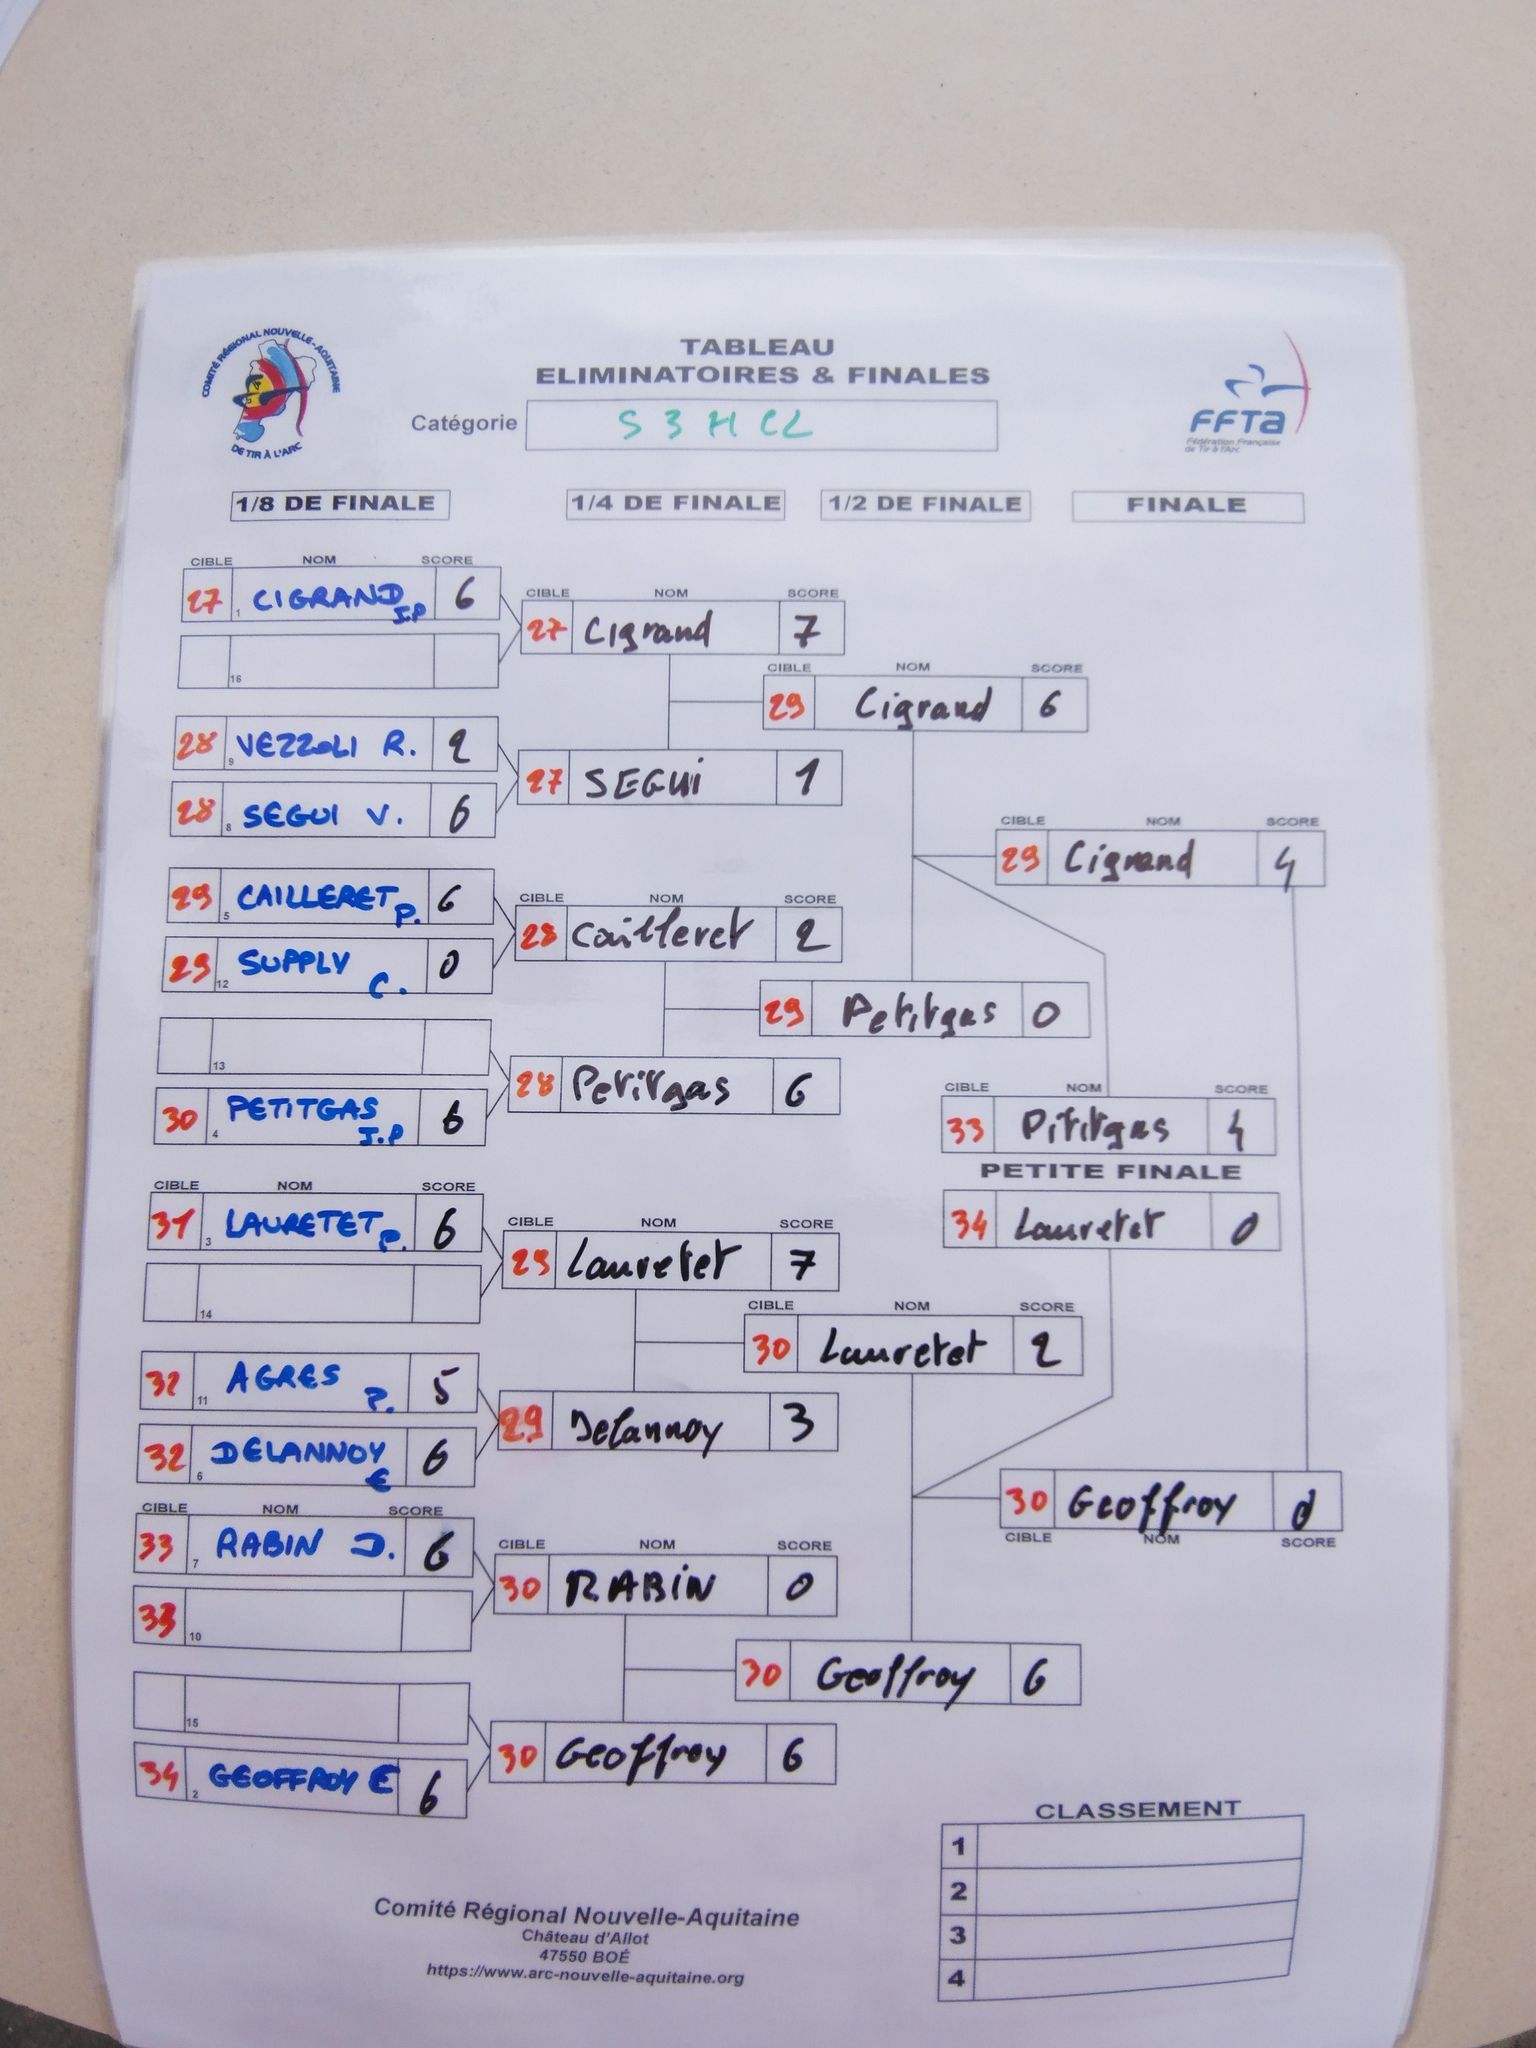 COMITÉ RÉGIONAL NOUVELLE-AQUITAINE
DE TIR À L'ARC
TABLEAU
ELIMINATOIRES & FINALES
Catégorie S3HCL
FFTA
Fédération Française
de Tir à l'Arc
1/8 DE FINALE 1/4 DE FINALE 1/2 DE FINALE FINALE
CIBLE NOM SCORE
27 1 CIGRAND J.P 6
16
28 9 VEZZOLI R. 2
28 8 SEGUI V. 6
29 5 CAILLERET P. 6
29 12 SUPPLY C. 0
13
30 4 PETITGAS J.P 6
CIBLE NOM SCORE
31 3 LAURETET P. 6
14
32 11 AGRES P. 5
32 6 DELANNOY E 6
CIBLE NOM SCORE
33 7 RABIN D. 6
33 10
15
34 2 GEOFFROY E 6
CIBLE NOM SCORE
27 Cigrand 7
27 SEGUI 1
CIBLE NOM SCORE
28 Cailleret 2
28 Petitgas 6
CIBLE NOM SCORE
29 Lauretet 7
29 Delannoy 3
CIBLE NOM SCORE
30 RABIN 0
30 Geoffroy 6
CIBLE NOM SCORE
29 Cigrand 6
29 Petitgas 0
CIBLE NOM SCORE
30 Lauretet 2
30 Geoffroy 6
CIBLE NOM SCORE
29 Cigrand 4
CIBLE NOM SCORE
33 Pititgas 4
PETITE FINALE
34 Lauretet 0
30 Geoffroy 0
CIBLE NOM SCORE
CLASSEMENT
1
2
3
4
Comité Régional Nouvelle-Aquitaine
Château d'Allot
47550 BOÉ
https://www.arc-nouvelle-aquitaine.org